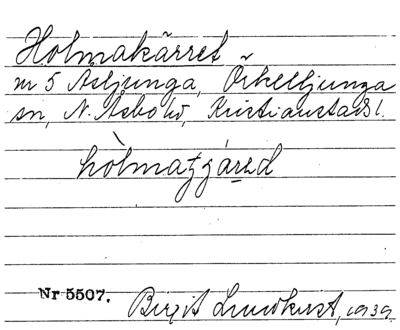 Holmakärret
nr 5 Åsljunga, Örkelljunga
sn, N. Åsbo hd, Kristianstads l.
hòlmatjárəd
Nr 5507. Birgit Lundkvist, 1939.